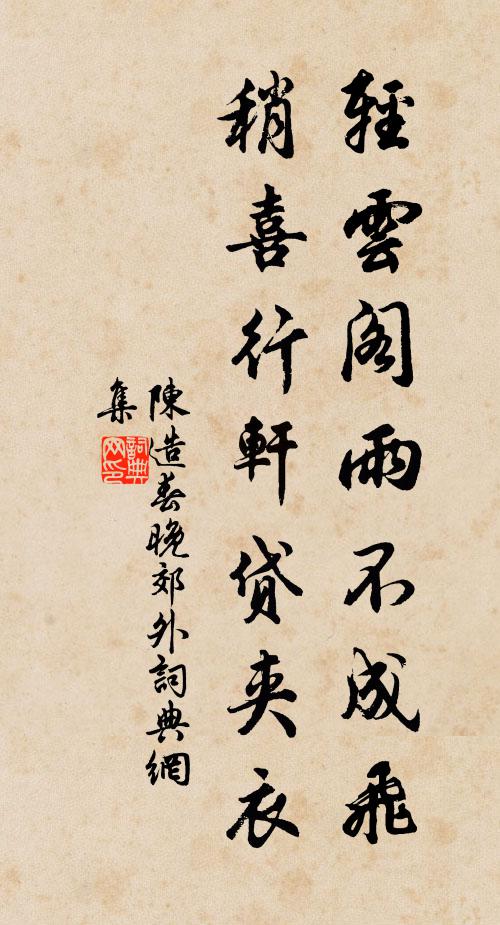 輕雲閣雨不成飛
稍喜行軒貸夾衣
陳造春晚郊外詞典網
集
詞典
网印